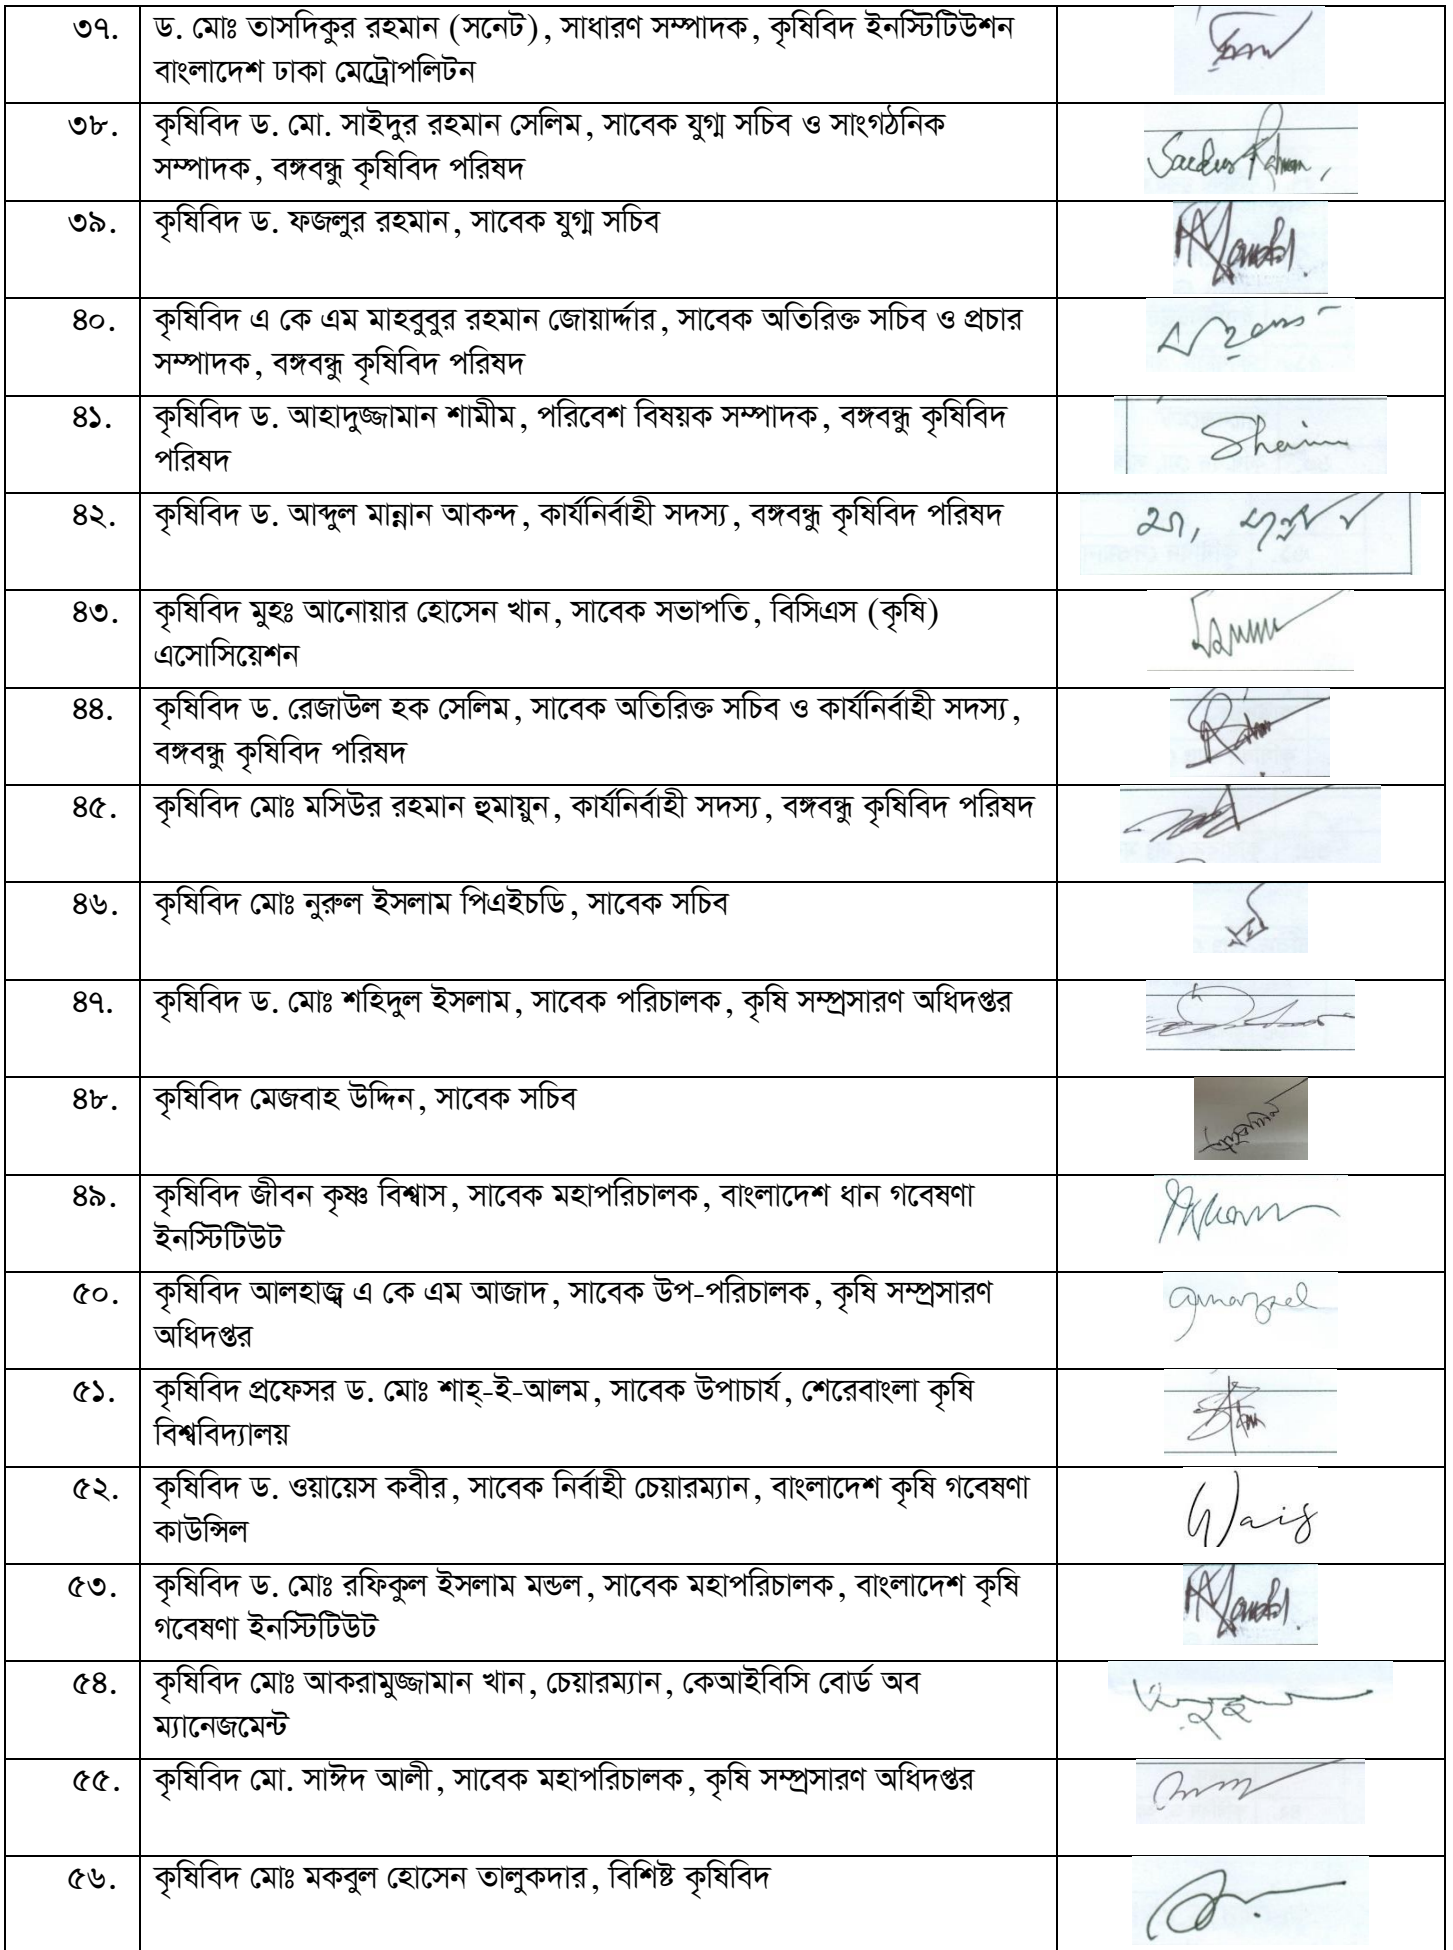 ৩৭. ড. মোঃ তাসদিকুর রহমান (সনেট), সাধারণ সম্পাদক, কৃষিবিদ ইনস্টিটিউশন
বাংলাদেশ ঢাকা মেট্রোপলিটন
৩৮. কৃষিবিদ ড. মো. সাইদুর রহমান সেলিম, সাবেক যুগ্ম সচিব ও সাংগঠনিক
সম্পাদক, বঙ্গবন্ধু কৃষিবিদ পরিষদ
৩৯. কৃষিবিদ ড. ফজলুর রহমান, সাবেক যুগ্ম সচিব
৪০. কৃষিবিদ এ কে এম মাহবুবুর রহমান জোয়ার্দ্দার, সাবেক অতিরিক্ত সচিব ও প্রচার
সম্পাদক, বঙ্গবন্ধু কৃষিবিদ পরিষদ
৪১. কৃষিবিদ ড. আহাদুজ্জামান শামীম, পরিবেশ বিষয়ক সম্পাদক, বঙ্গবন্ধু কৃষিবিদ
পরিষদ
৪২. কৃষিবিদ ড. আব্দুল মান্নান আকন্দ, কার্যনির্বাহী সদস্য, বঙ্গবন্ধু কৃষিবিদ পরিষদ
৪৩. কৃষিবিদ মুহঃ আনোয়ার হোসেন খান, সাবেক সভাপতি, বিসিএস (কৃষি)
এসোসিয়েশন
৪৪. কৃষিবিদ ড. রেজাউল হক সেলিম, সাবেক অতিরিক্ত সচিব ও কার্যনির্বাহী সদস্য,
বঙ্গবন্ধু কৃষিবিদ পরিষদ
৪৫. কৃষিবিদ মোঃ মসিউর রহমান হুমায়ুন, কার্যনির্বাহী সদস্য, বঙ্গবন্ধু কৃষিবিদ পরিষদ
৪৬. কৃষিবিদ মোঃ নুরুল ইসলাম পিএইচডি, সাবেক সচিব
৪৭. কৃষিবিদ ড. মোঃ শহিদুল ইসলাম, সাবেক পরিচালক, কৃষি সম্প্রসারণ অধিদপ্তর
৪৮. কৃষিবিদ মেজবাহ উদ্দিন, সাবেক সচিব
৪৯. কৃষিবিদ জীবন কৃষ্ণ বিশ্বাস, সাবেক মহাপরিচালক, বাংলাদেশ ধান গবেষণা
ইনস্টিটিউট
৫০. কৃষিবিদ আলহাজ্ব এ কে এম আজাদ, সাবেক উপ-পরিচালক, কৃষি সম্প্রসারণ
অধিদপ্তর
৫১. কৃষিবিদ প্রফেসর ড. মোঃ শাহ্-ই-আলম, সাবেক উপাচার্য, শেরেবাংলা কৃষি
বিশ্ববিদ্যালয়
৫২. কৃষিবিদ ড. ওয়ায়েস কবীর, সাবেক নির্বাহী চেয়ারম্যান, বাংলাদেশ কৃষি গবেষণা
কাউন্সিল
৫৩. কৃষিবিদ ড. মোঃ রফিকুল ইসলাম মন্ডল, সাবেক মহাপরিচালক, বাংলাদেশ কৃষি
গবেষণা ইনস্টিটিউট
৫৪. কৃষিবিদ মোঃ আকরামুজ্জামান খান, চেয়ারম্যান, কেআইবিসি বোর্ড অব
ম্যানেজমেন্ট
৫৫. কৃষিবিদ মো. সাঈদ আলী, সাবেক মহাপরিচালক, কৃষি সম্প্রসারণ অধিদপ্তর
৫৬. কৃষিবিদ মোঃ মকবুল হোসেন তালুকদার, বিশিষ্ট কৃষিবিদ